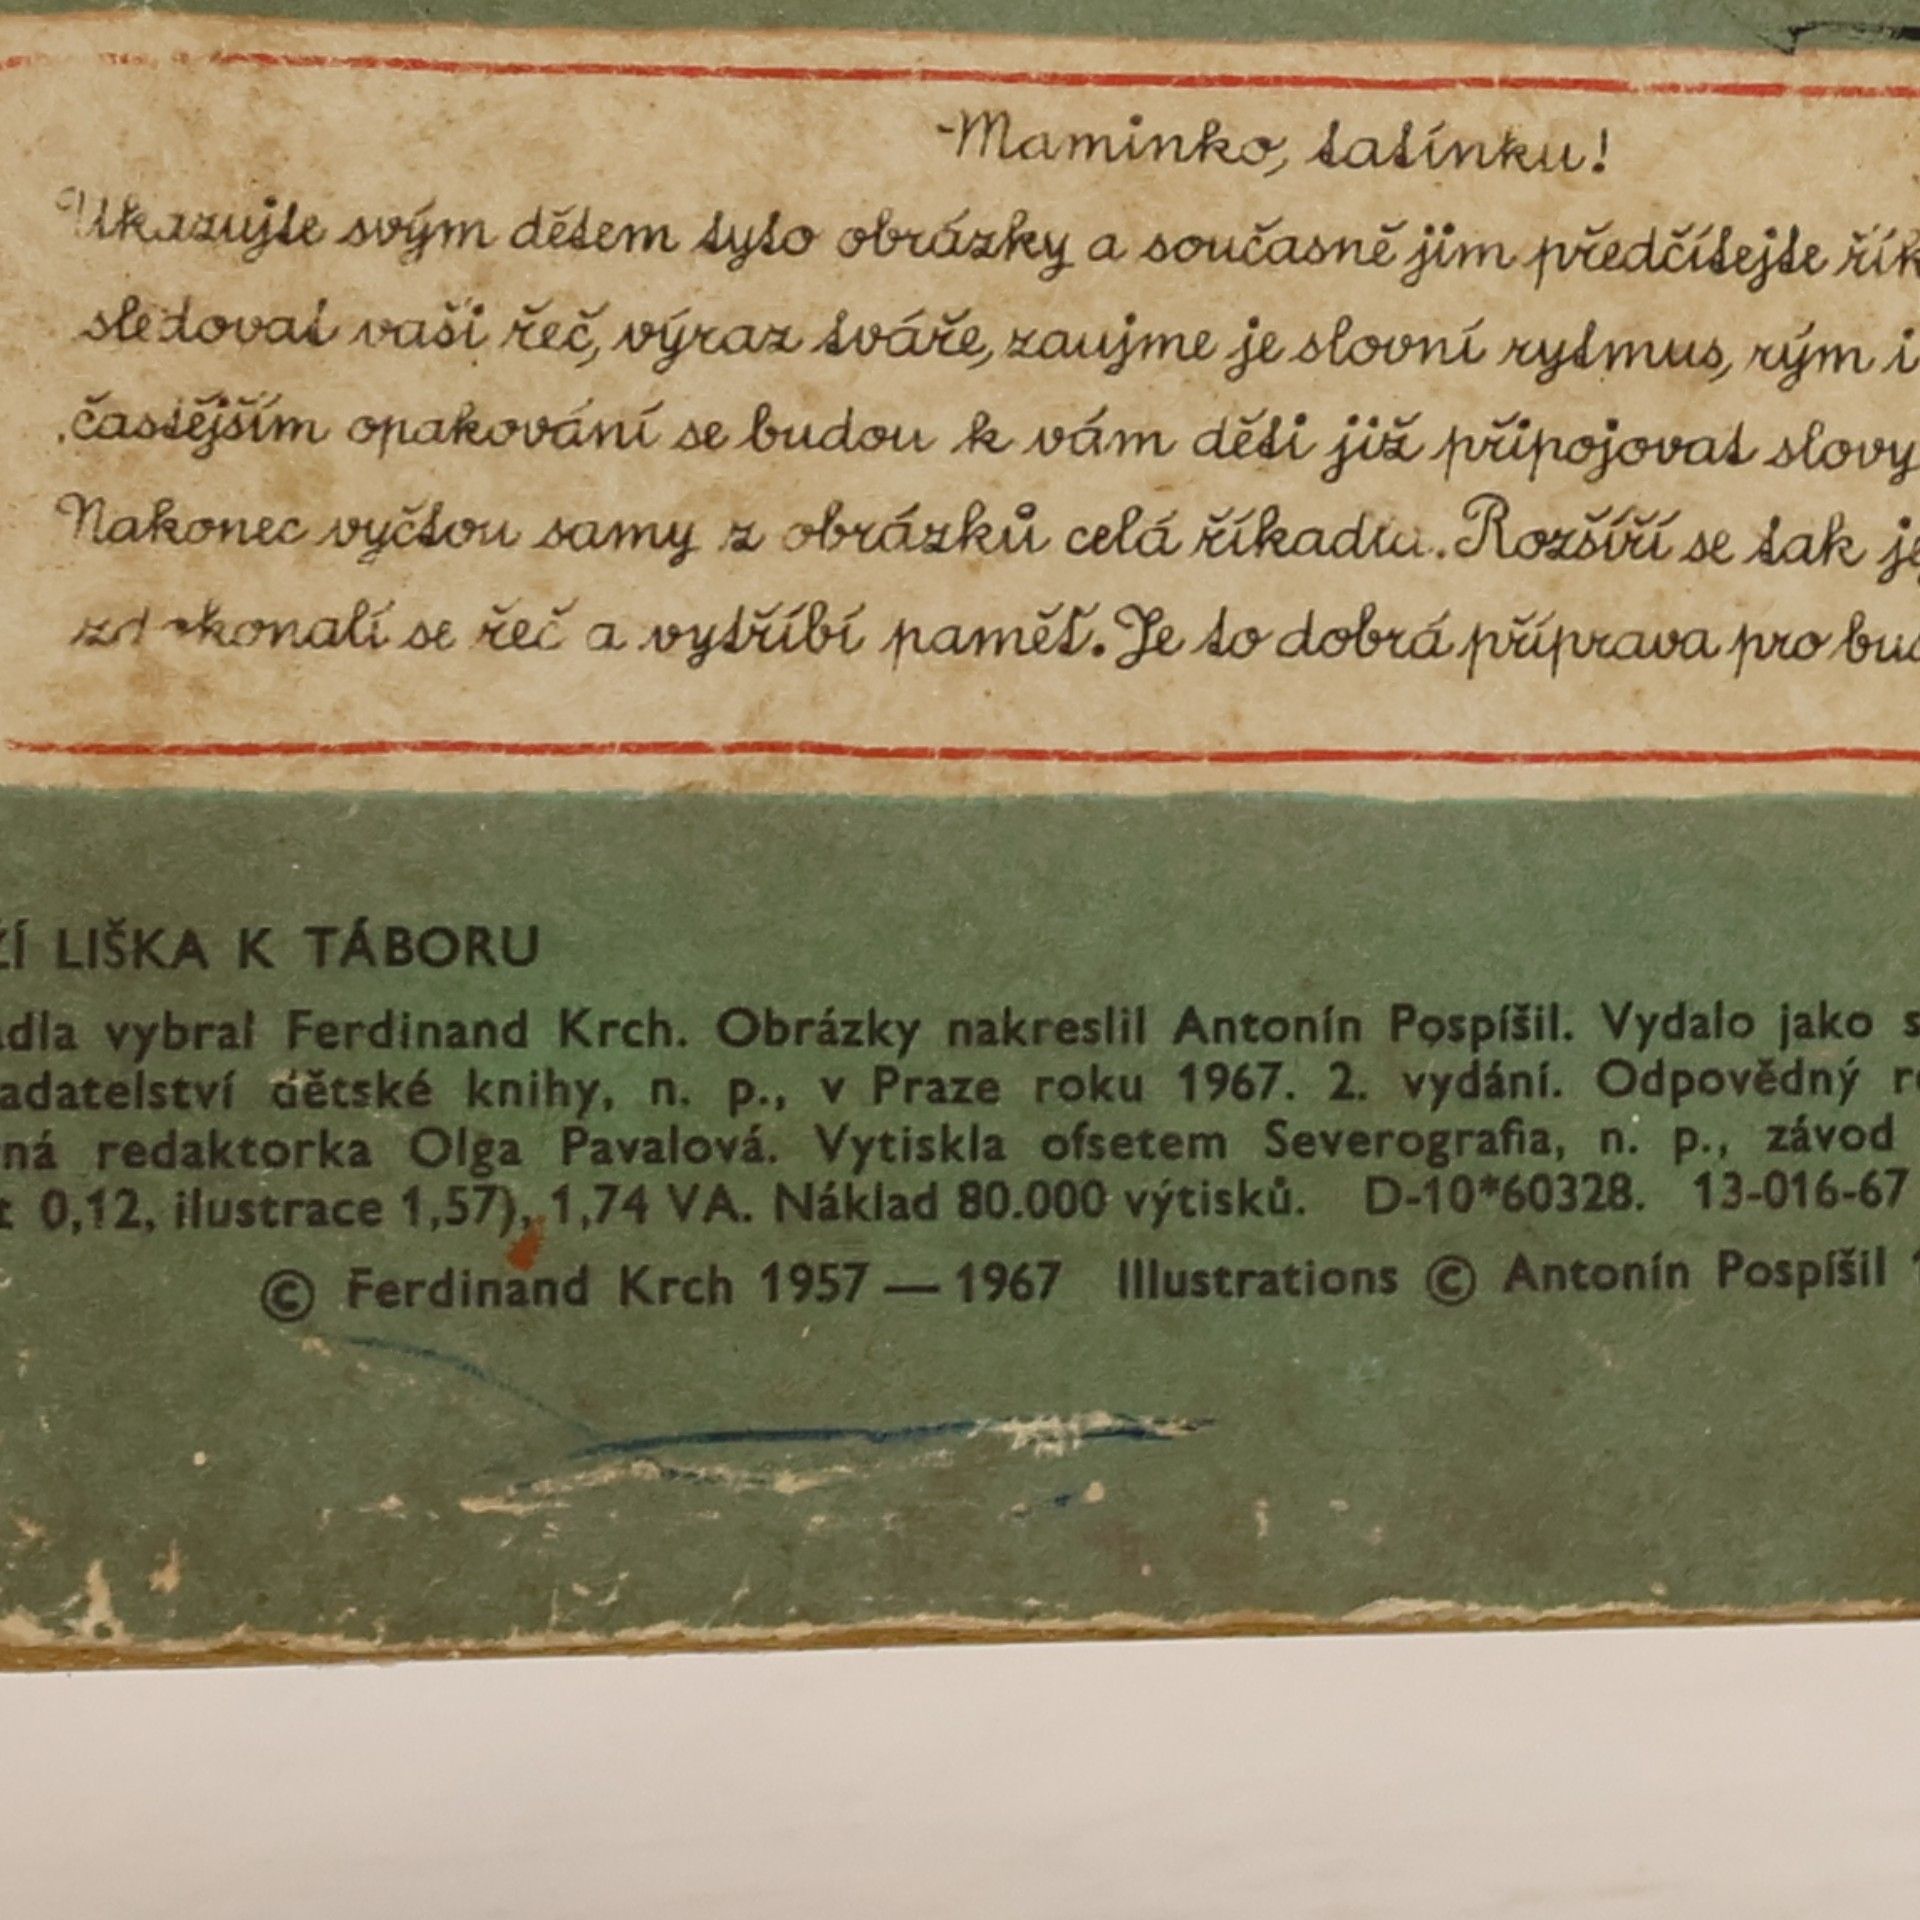 Maminko, tatínku!
Ukazujte svým dětem tyto obrázky a současně jim předčítejte řík
sledovat vaši řeč, výraz tváře, zaujme je slovní rytmus, rým i
častějším opakování se budou k vám děti již připojovat slovy
Nakonec vyčtou samy z obrázků celá říkadla. Rozšíří se tak je
zdokonalí se řeč a vytříbí paměť. Je to dobrá příprava pro bud
ŽÍ LIŠKA K TÁBORU
adla vybral Ferdinand Krch. Obrázky nakreslil Antonín Pospíšil. Vydalo jako s
adatelství dětské knihy, n. p., v Praze roku 1967. 2. vydání. Odpovědný re
ná redaktorka Olga Pavalová. Vytiskla ofsetem Severografia, n. p., závod
t 0,12, ilustrace 1,57), 1,74 VA. Náklad 80.000 výtisků. D-10*60328. 13-016-67
© Ferdinand Krch 1957 — 1967 Illustrations © Antonín Pospíšil 1